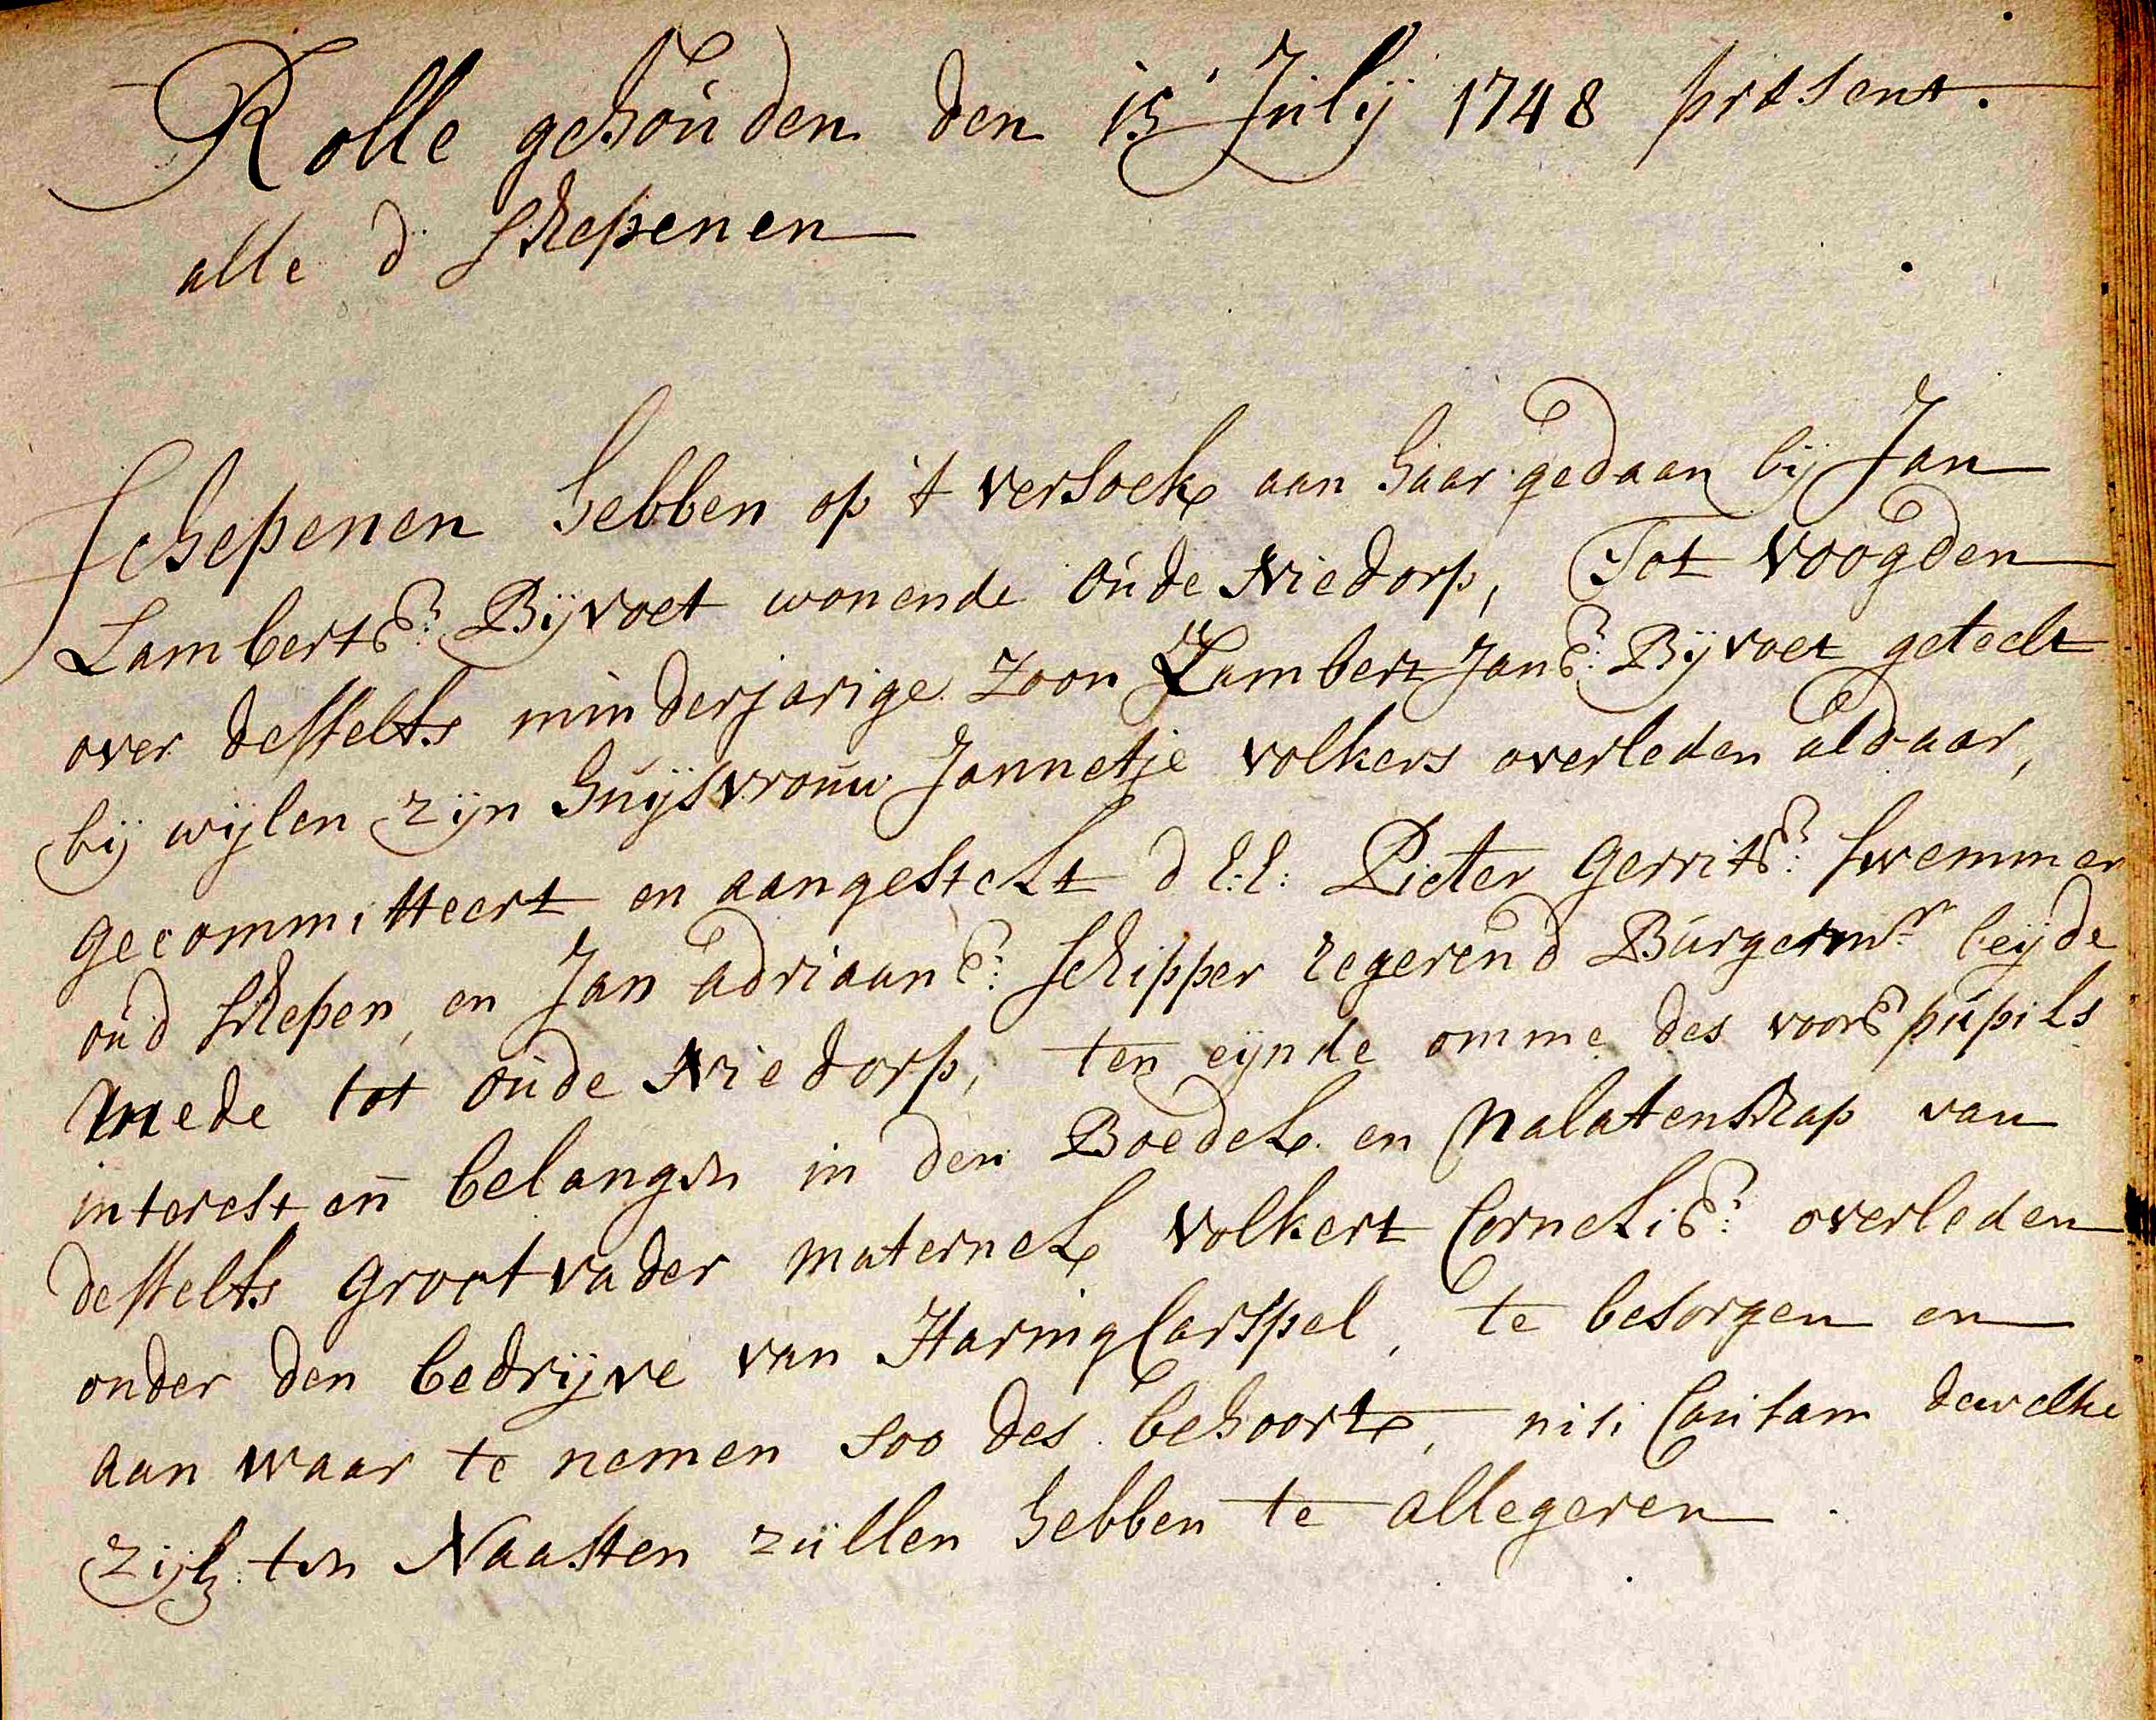 Rolle gehouden den 15 Julij 1748 present.
alle d' schepenen
Schepenen hebben op 't versoek aan haar gedaan bij Jan
Lamberts: Bijvoet wonende oude Niedorp, Tot voogden
over desselfs minderjarige zoon Lambert Jans: Bijvoet geteelt
bij wijlen zijn huijsvrouw Jannetje volkers overleden aldaar,
gecommitteert en aangestelt d E:E: Pieter Gerrits: Swemmer
oud schepen, en Jan adriaans: schipper regerend Burgermr beijde
mede tot oude Niedorp, ten eijnde omme des voors pupils
interest en belangen in den Boedel en Nalatenschap van
desselfs grootvader maternel volkert Cornelis: overleden
onder den bedrijve van Haringcarspel, te besorgen en
aan waar te nemen soo des behoort, nisi Causam dewelke
zij ten Naasten zullen hebben te allegeren